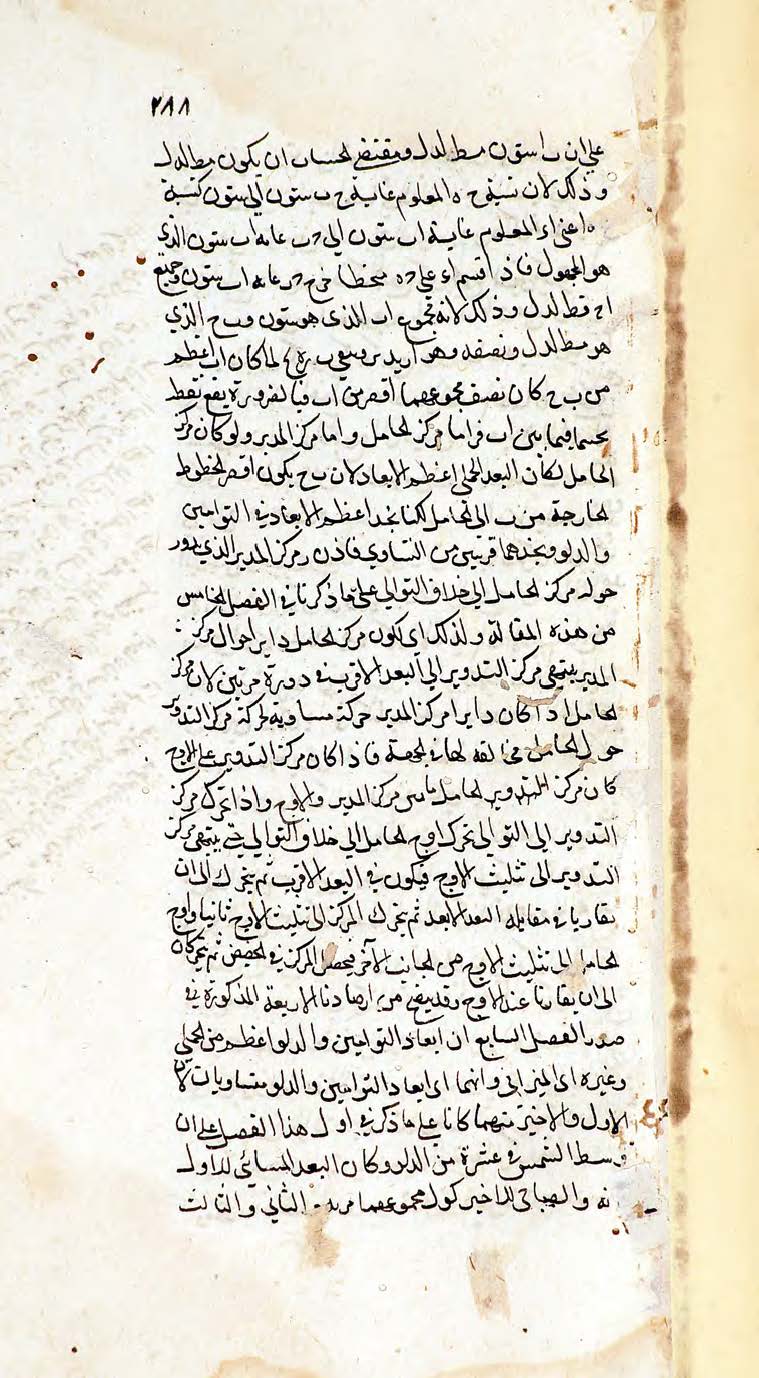 ٢٨٨
على ان ب ا ستون مط لدل ومقتضى الحساب ان يكون مط لدل
وذلك لان نسبة ح ه المعلوم غاية ح ب ستون الى ستون كنسبة
ه ا اعنى اء المعلوم غاية اب ستون الى ح ب غاية اب ستون الذى
هو المجهول فاذا قسم اء على ح ه منحطا خرج ح ب غاية اب ستون وجميع
اح قط لدل وذلك لانه مجموع اب الذى هو ستون وب ح الذى
هو مط لدل ونصفه وهو ار يد ولما كان اب اعظم
من ب ح كان نصف مجموعهما اقصر من اب فبالضرورة يقع نقط
بحسبها فيما بين اب فر اما مركز الحامل واما مركز المدير ولو كان مركز
الحامل لكان البعد الحملى اعظم الابعاد لان ب ح يكون اقصر الخطوط
الخارجة من ب الى الحامل لكنا نجد اعظم الابعاد فى التوامين
والدلو ونجدهما قريبين من التساوى فاذن ر مركز المدير الذى يدور
حوله مركز الحامل الى خلاف التوالى على ما ذكرنا فى الفصل الخامس
من هذه المقالة ولذلك اى لكون مركز الحامل دايرا حوال مركز
المدير ينتهى مركز التدوير الى البعد الاقرب فى دورة مرتين لان مركز
الحامل اذا كان دايرا مركز المدير حركة مساوية لحركة مركز التدوير
حول الحامل مخالفة لها فى الجهة فاذا كان مركز التدوير على الاوج
كان مركز التدوير الحامل ما بين مركز المدير والاوج واذا تحرك مركز
التدوير الى التوالى تحرك اوج الحامل الى خلاف التوالى حتى ينتهى مركز
التدوير الى تثليث الاوج فيكون فى البعد الاقرب ثم يتحرك الى ان
يتقاربا فى مقابلة البعد الابعد ثم يتحرك المركز الى تثليث الاوج ثانيا واوج
الحامل الى تثليث الاوج من الجانب الآخر فيحصل المركز فى الحضيض ثم يتحركان
الى ان يتقاربا عند الاوج وقد يتضح من ارصادنا الاربعة المذكورة فى
صدر الفصل السابع ان ابعاد التوامين والدلو اعظم من الحملى
وغيره اى الميزانى وانهما اى ابعاد التوامين والدلو متساويات لان
الاول والاخير منهما كانا على ما ذكر فى اول هذا الفصل على ان
وسط الشمس فى عشرة من الدلو وكان البعد المسائى للاول
نه والصباحى للاخير كول مجموعهما مر نه الثانى والثالث